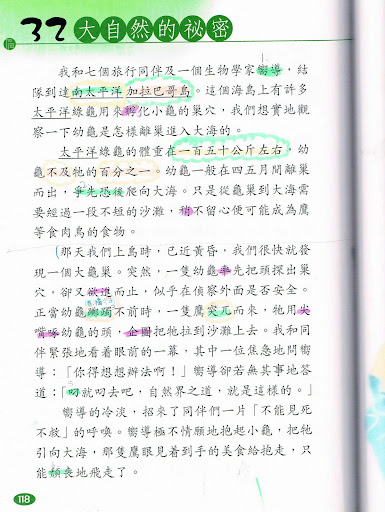 37 大自然的祕密
我和七個旅行同伴及一個生物學家嚮導，結
隊到達南太平洋加拉巴哥島。這個海島上有許多
太平洋綠龜用來孵化小龜的巢穴，我們想實地觀
察一下幼龜是怎樣離巢進入大海的。
太平洋綠龜的體重在一百五十公斤左右，幼
龜不及牠的百分之一。幼龜一般在四五月間離巢
而出，爭先恐後爬向大海。只是從龜巢到大海需
要經過一段不短的沙灘，稍不留心便可能成為鷹
等食肉鳥的食物。
那天我們上島時，已近黃昏，我們很快就發
現一個大龜巢。突然，一隻幼龜率先把頭探出巢
穴，卻又欲進而止，似乎在偵察外面是否安全。
正當幼龜躑躅不前時，一隻鷹突兀而來，牠用尖
嘴啄幼龜的頭，企圖把牠拉到沙灘上去。我和同
伴緊張地看着眼前的一幕，其中一位焦急地問嚮
導：「你得想想辦法啊！」嚮導卻若無其事地答
道：「叼就叼去吧，自然界之道，就是這樣的。」
嚮導的冷淡，招來了同伴們一片「不能見死
不救」的呼喚。嚮導極不情願地抱起小龜，把牠
引向大海，那隻鷹眼見着到手的美食給抱走，只
能頹喪地飛走了。
118